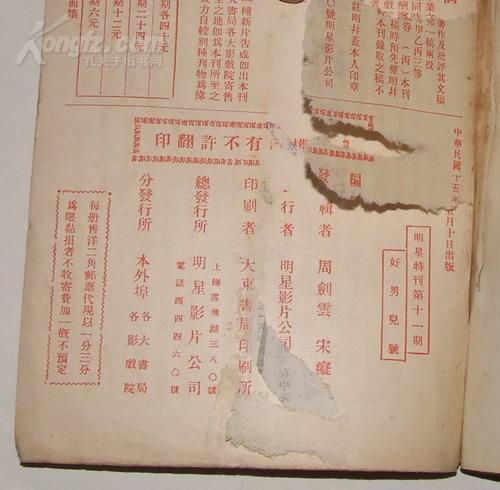 著作及批評其文稿
業第一稿兩投
同時甲乙丙三等
酬(丙)本刊
戲院時預先聲明幷
註明幷蓋本人印章
號明星影片公司
種新片告成卽出本刊
大書局各大影戲院寄售
至之地卽為本刊所至之
力自較別種刊物為偉
期各四十元
期二十四元
期十二元
期六元
面議
有不許翻印
中華民國十五年五月十日出版
明星特刊第十一期
好男兒號
編輯者 周劍雲 宋癡
發行者 明星影片公司
印刷者 大東書局印刷所
總發行所 明星影片公司
上海霞飛路三八〇號
電話西四四六〇號
分發行所 本外埠 各大書局
各影戲院
每册售洋二角郵票代現以一分三分
為限黏損者不收寄費加一槪不預定
孔夫子旧书网